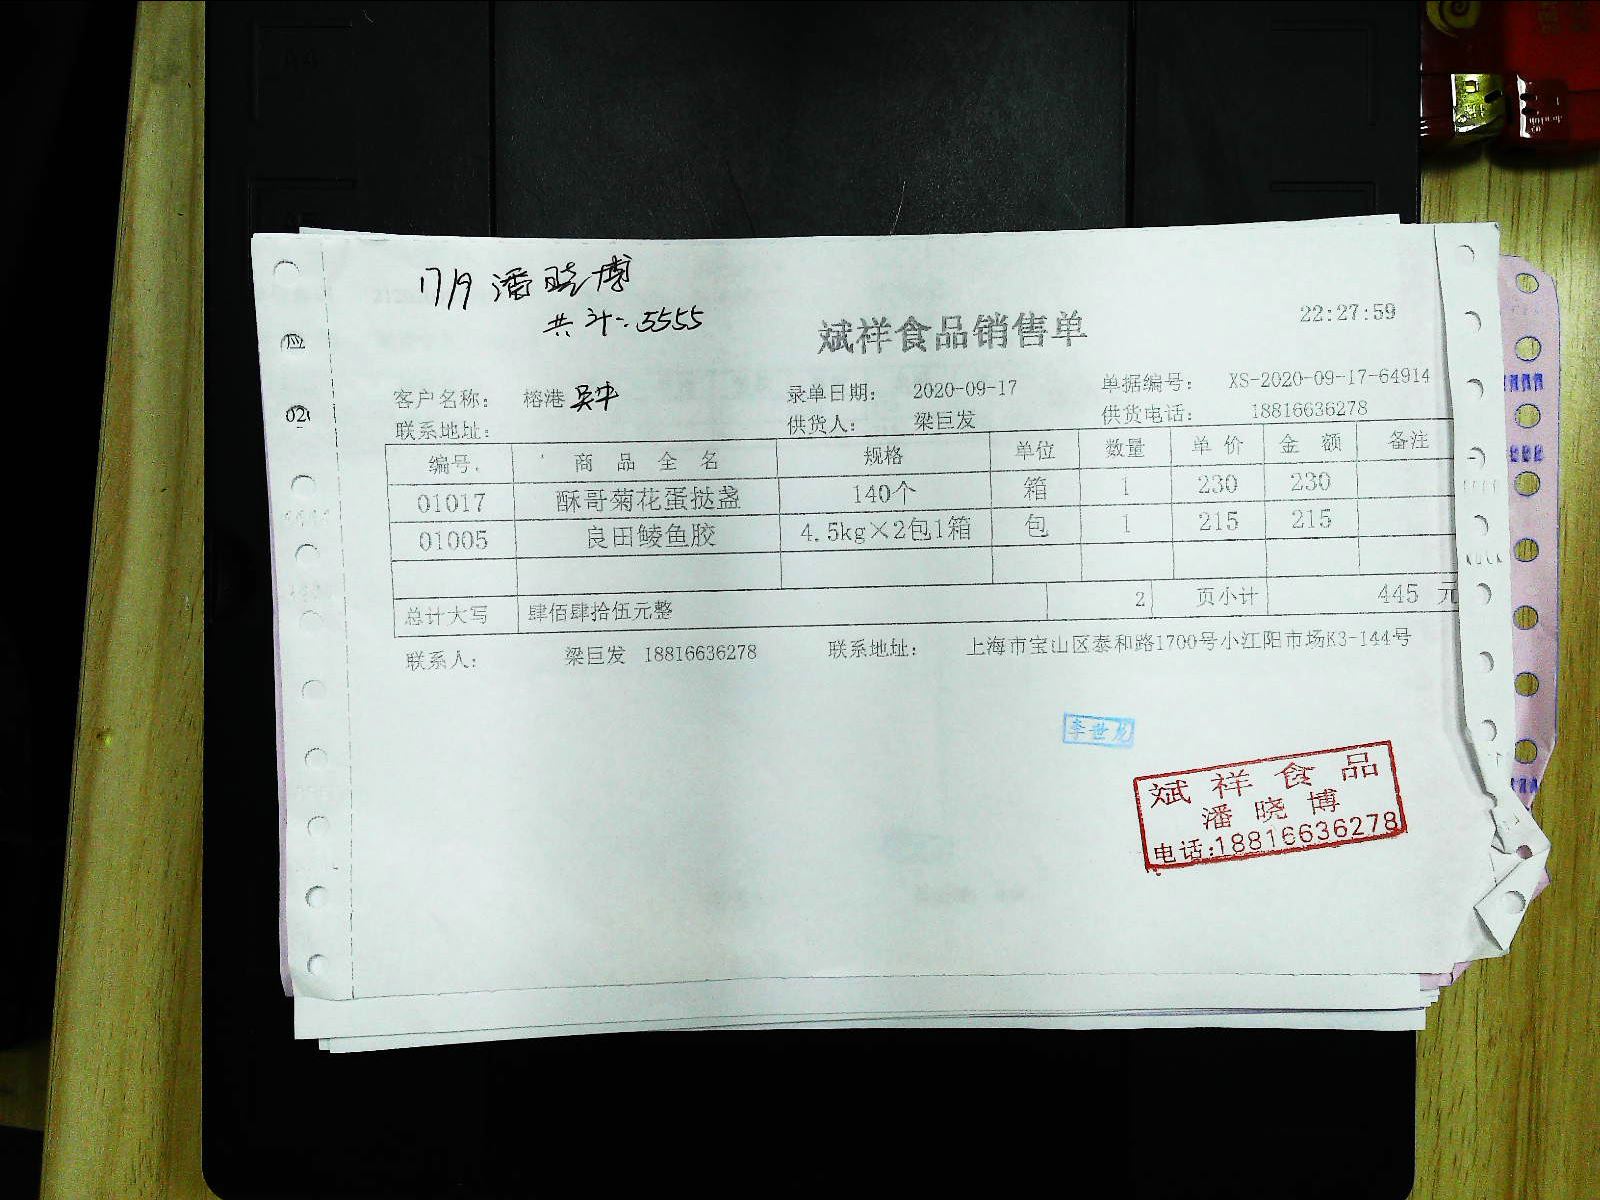 17/9 潘晓博
共计: 5555
斌祥食品销售单
22:27:59
客户名称: 榕港
录单日期: 2020-09-17
单据编号: XS-2020-09-17-64914
联系地址:
供货人: 梁巨发
供货电话: 18816636278
编号 商品全名 规格 单位 数量 单价 金额 备注
01017 酥哥菊花蛋挞盏 140个 箱 1 230 230
01005 良田鲮鱼胶 4.5kg×2包1箱 包 1 215 215
总计大写 肆佰肆拾伍元整 2 页小计 445 元
联系人: 梁巨发 18816636278 联系地址: 上海市宝山区泰和路1700号小江阳市场K3-144号
李世龙
斌祥食品
潘晓博
电话:18816636278